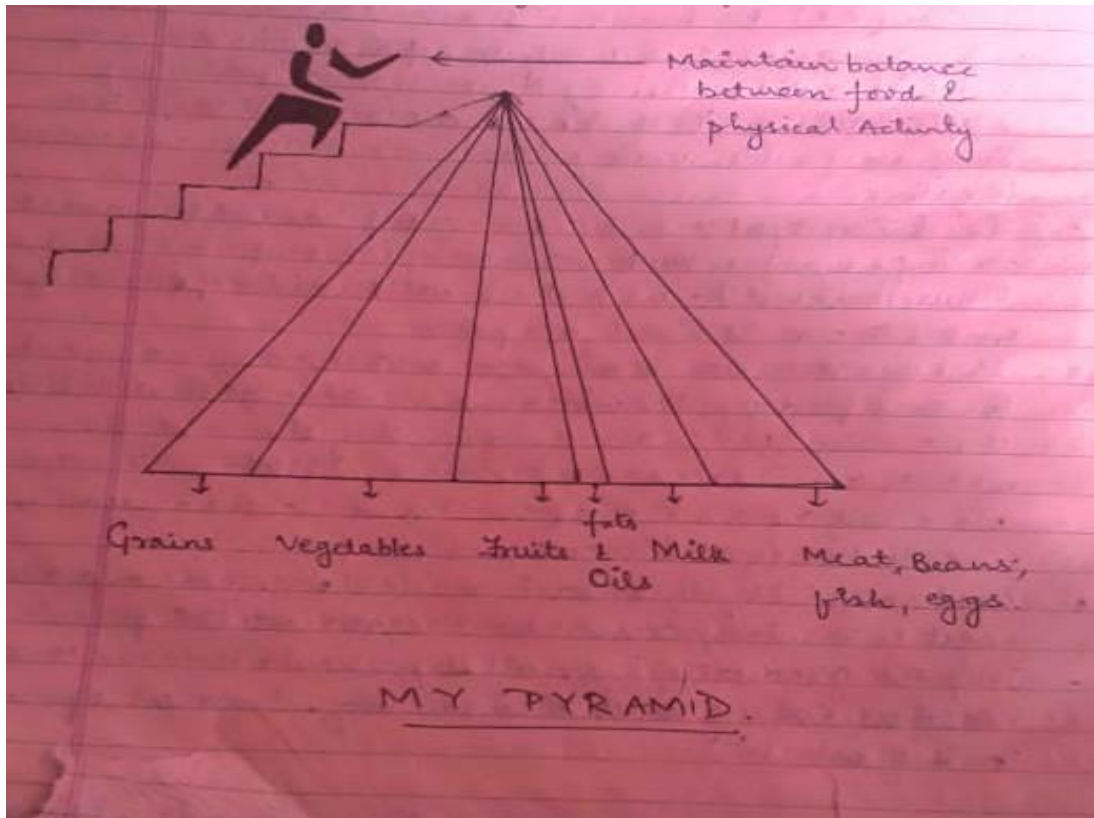 Maintain balance
between food &
physical Activity
Grains
Vegetables
Fruits
fats
&
Oils
Milk
Meat, Beans,
fish, eggs.
MY PYRAMID.